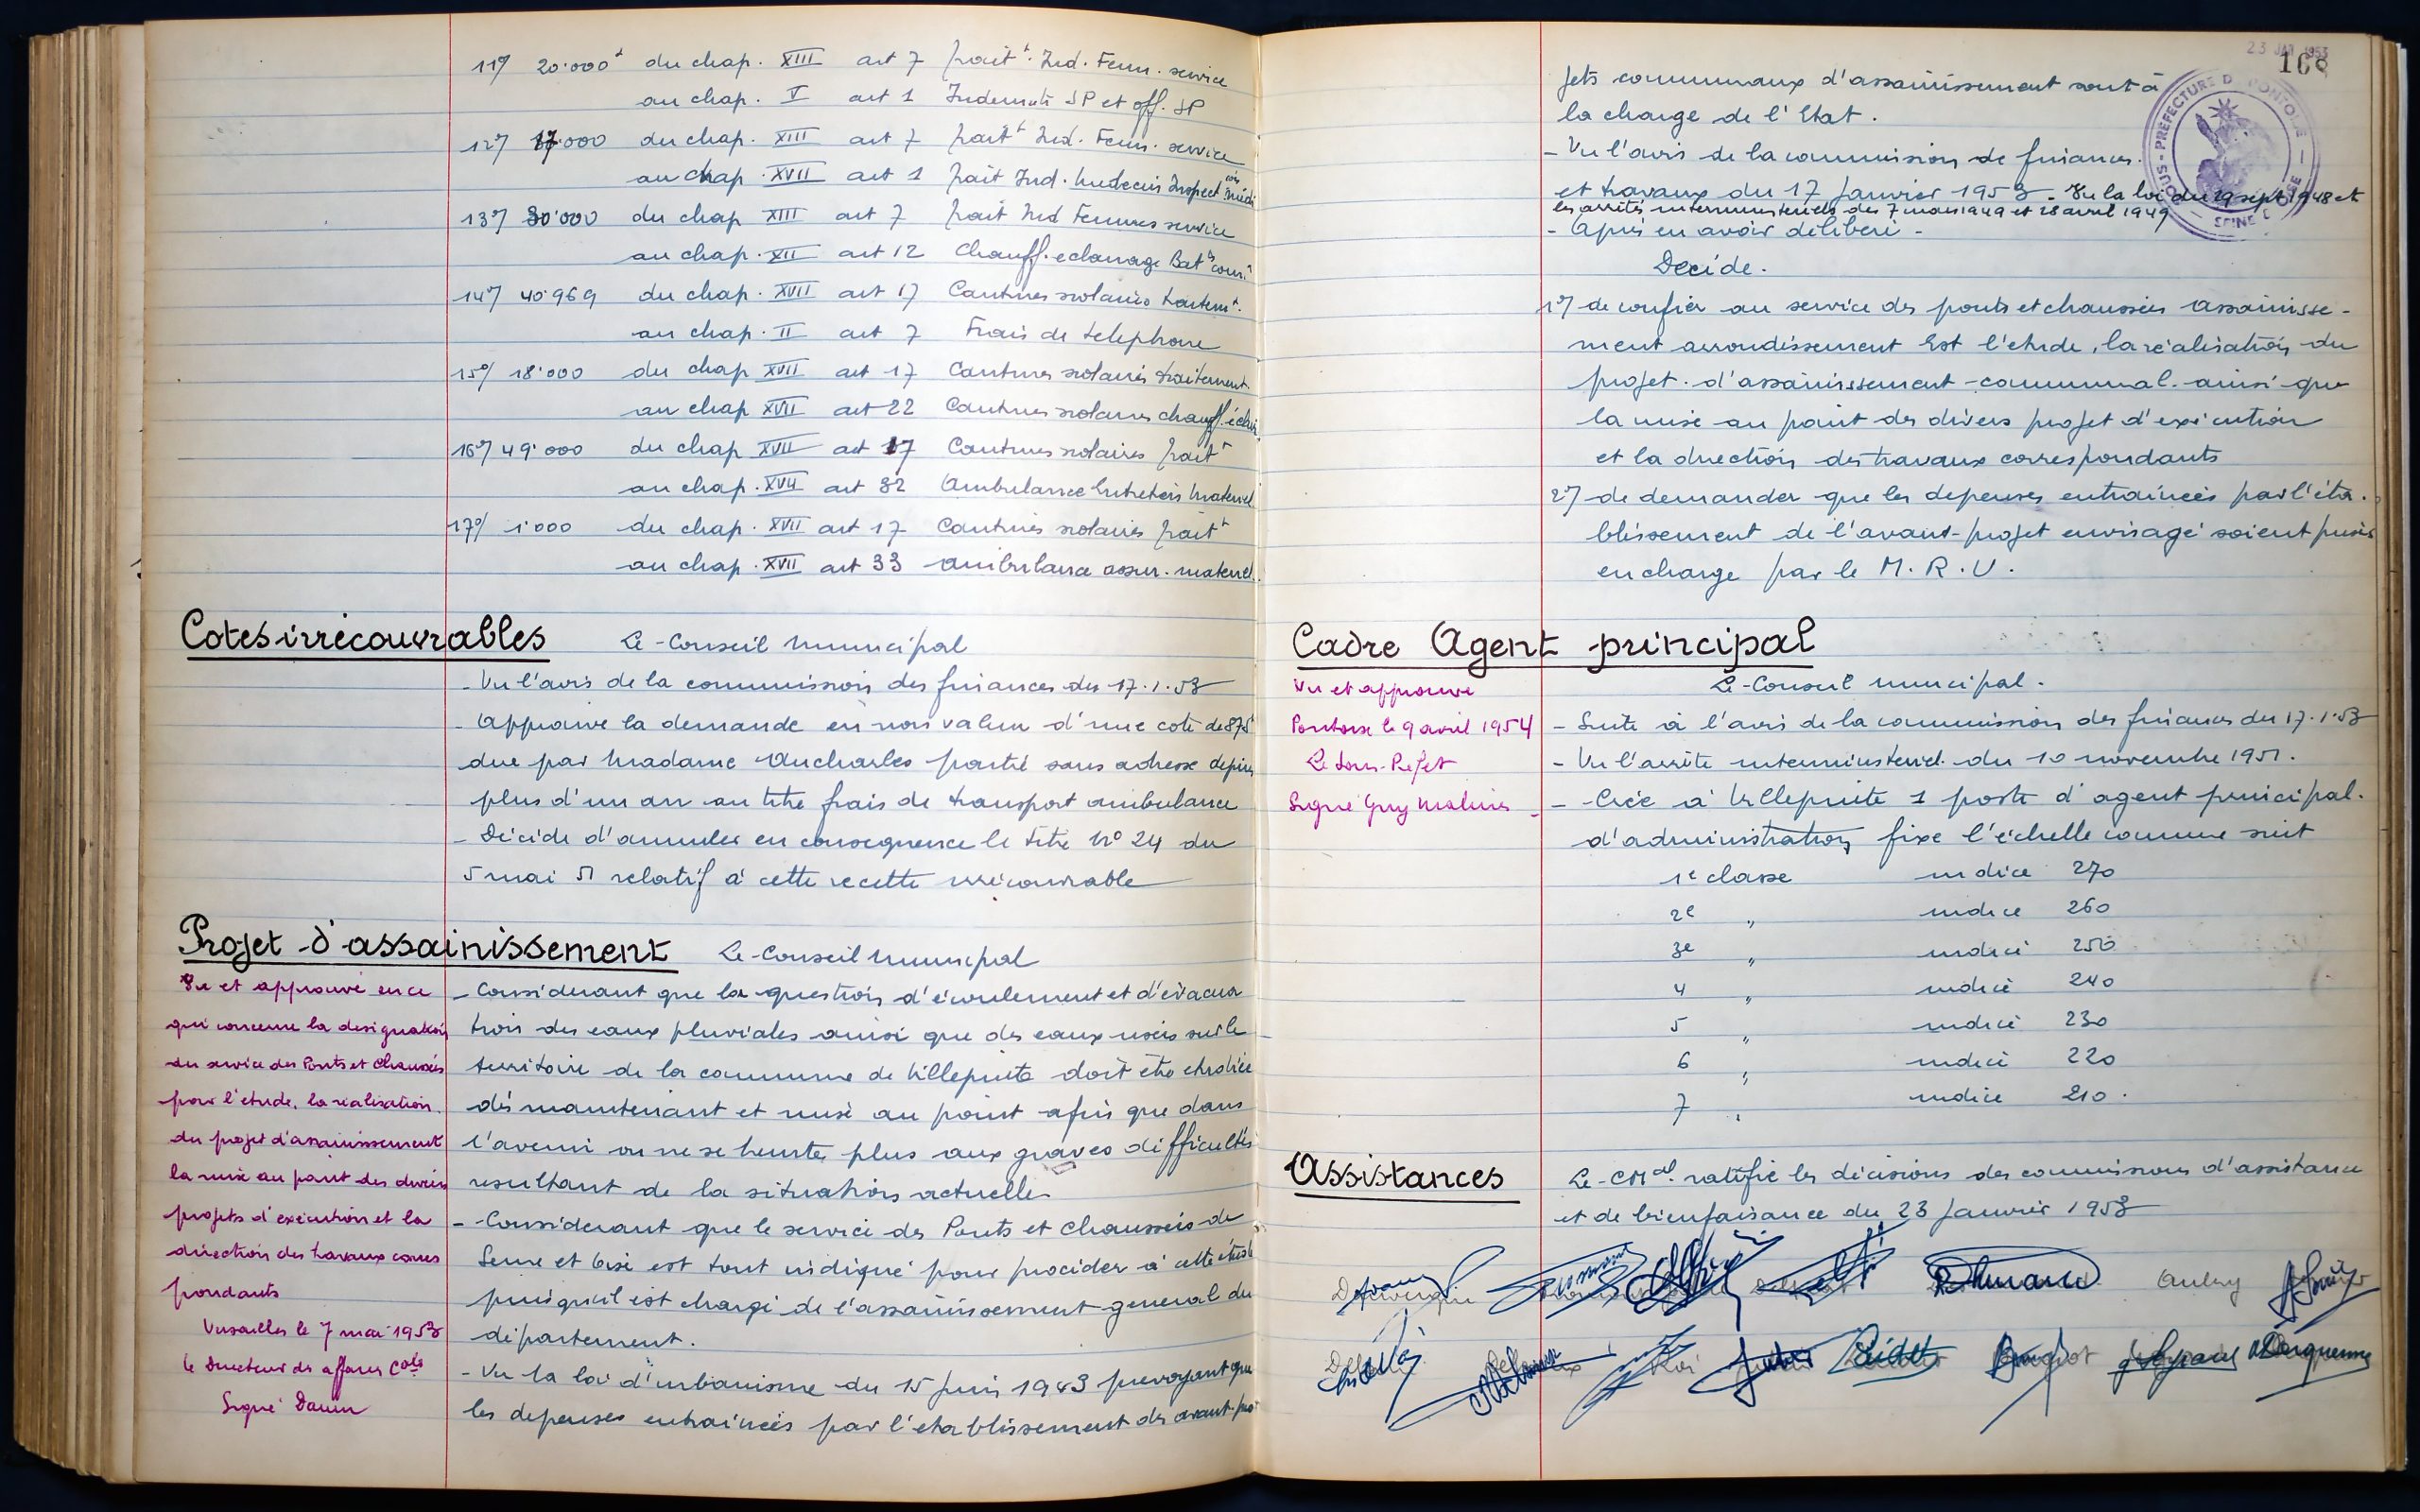 11°/ 20.000 du chap. XIII art 7 trait. Ind. Fem. service
au chap. V art 1 Indemnité SP et off. SP
12°/ 17.000 du chap. XIII art 7 trait Ind. Fem. service
au chap. XVII art 1 Trait Ind. medecin Inspect
13°/ 30.000 du chap XIII art 7 trait Ind Femmes service
au chap. XII art 12 Chauff. eclairage Bat com.
14°/ 40.969 du chap. XVII art 17 Cantines scolaires traitemt.
au chap. II art 7 Frais de telephone
15°/ 18.000 du chap XVII art 17 Cantines scolaires traitement
au chap XVII art 22 Cantines scolaires chauff. éclair
16°/ 49.000 du chap XVII art 17 Cantines scolaires trait
au chap. XVII art 32 Ambulance Entretien materiel
17°/ 1.000 du chap. XVII art 17 Cantines scolaires trait
au chap. XVII art 33 ambulance assur. materiel
Cotes irrecouvrables Le Conseil municipal
- Vu l'avis de la commission des finances du 17.1.53
- Approuve la demande en non valeur d'une cote de 875
due par Madame Aucharles partie sans adresse depuis
plus d'un an au titre frais de transport ambulance
- Décide d'annuler en consequence le titre N° 24 du
5 mai 51 relatif à cette recette irrécouvrable
Projet d'assainissement Le Conseil municipal
- Considerant que la question d'écoulement et d'évacua
tion des eaux pluviales ainsi que des eaux usées sur le
territoire de la commune de Villepinte doit être étudiée
dès maintenant et mise au point afin que dans
l'avenir on ne se heurte plus aux graves difficultés
resultant de la situation actuelle
- Considerant que le service des Ponts et Chaussées de
Seine et Oise est tout indiqué pour proceder à cette étude
puisqu'il est chargé de l'assainissement general du
département.
- Vu la loi d'urbanisme du 15 juin 1943 prevoyant que
les depenses entrainées par l'etablissement des avant-pro
Vu et approuvé en ce
qui concerne la designation
du service des Ponts et Chaussées
pour l'étude, la réalisation
du projet d'assainissement
la mise au point des divers
projets d'execution et la
direction des travaux corres
pondants
Versailles le 7 mai 1953
le Directeur des affaires Cales
Signé Daum
23 JAN 1953
168
SOUS-PREFECTURE DE PONTOISE
SEINE
jets communaux d'assainissement sont à
la charge de l'Etat.
- Vu l'avis de la commission de finances
et travaux du 17 Janvier 1953 - Vu la loi du 29 sept 1948 et
les arrêtés interministeriels des 7 mars 1949 et 28 avril 1949
- Après en avoir délibéré -
Decide.
1°/ de confier au service des ponts et chaussées assainisse-
ment arrondissement Est l'etude, la réalisation du
projet d'assainissement communal ainsi que
la mise au point des divers projet d'exécution
et la direction des travaux correspondants
2°/ de demander que les depenses entrainées par l'éta-
blissement de l'avant-projet envisagé soient prises
en charge par le M.R.U.
Cadre Agent principal
Le Conseil municipal.
- Suite à l'avis de la commission des finances du 17.1.53
- Vu l'arrêté interministeriel du 10 novembre 1951.
- Crée à Villepinte 1 poste d'agent principal
d'administration, fixe l'échelle comme suit
1e classe indice 270
2e " indice 260
3e " indice 250
4 " indice 240
5 " indice 230
6 " indice 220
7 " indice 210.
Vu et approuvé
Pontoise le 9 avril 1954
Le Sous-Prefet
Signé Guy
Assistances Le CMal. ratifie les décisions des commissions d'assistance
et de bienfaisance du 23 Janvier 1953
Aubry
Roi